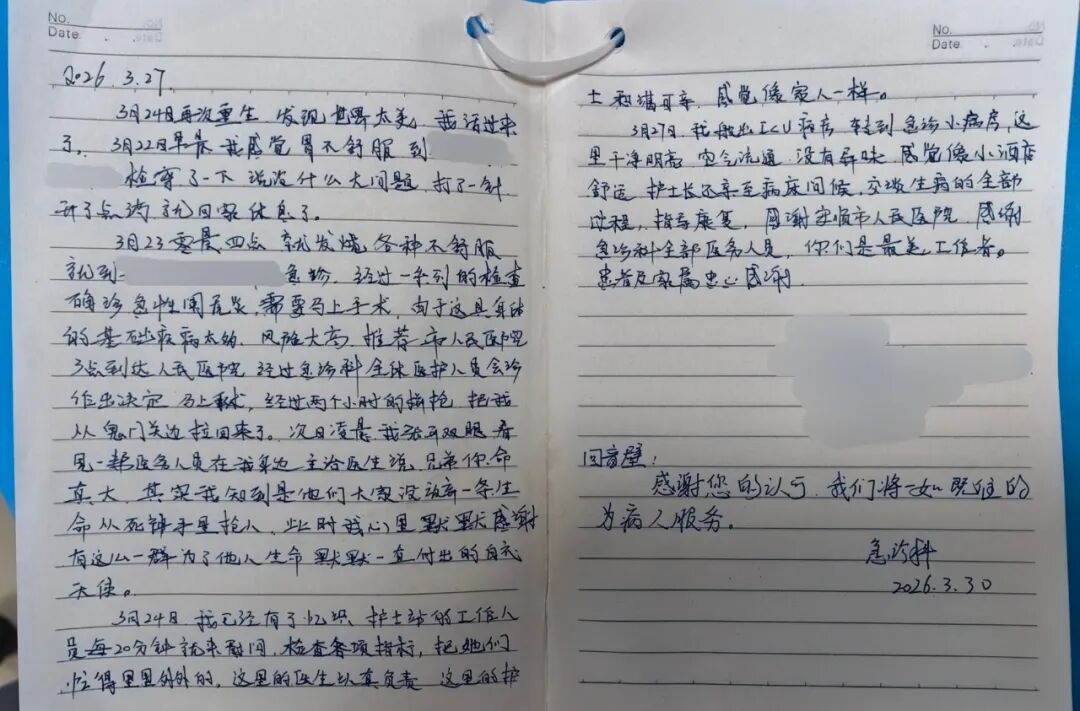 No.
Date
2026.3.27
3月24日再次重生 发现世界太美 我活过来
了。3月22日早晨 我感觉胃不舒服 到
检察了一下 说没什么大问题,打了一针
开了点药 就回家休息了。
3月23零晨四点 就发烧 各种不舒服
就到 急珍,经过一系列的检查
确珍急性阑尾炎,需要马上手术,由于这具身体
的基础疾病太多,风险太高,推荐市人民医院
3点到达人民医院 经过急珍科全体医护人员会珍
作出决定 马上手术,经过两个小时的抢救 把我
从鬼门关边拉回来了。次日凌晨 我张开双眼 看
见一群医务人员在我身边 主治医生说,兄弟你命
真大 其实我知到是他们大家没放弃一条生
命从死神手里抢人,此时我心里默默感谢
有这么一群为了他人生命默默一直付出的白衣
天使。
3月24日,我已经有了忆识,护士站的工作人
员每20分钟就来慰问,检查各项指标,把她们
忙得里里外外的,这里的医生认真负责 这里的护
No.
Date
士和蔼可亲,感觉像家人一样。
3月27日,我搬出ICU病房 转到急诊小病房,这
里干净明亮 空气流通,没有异味,感觉像小酒店
舒适 护士长还亲至病床问候,交谈生病的全部
过程,指导康复,感谢安顺市人民医院,感谢
急诊科全部医务人员,你们是最美工作者。
患者及家属忠心感谢
回音壁:
感谢您的认可,我们将一如既往的
为病人服务。
急诊科
2026.3.30